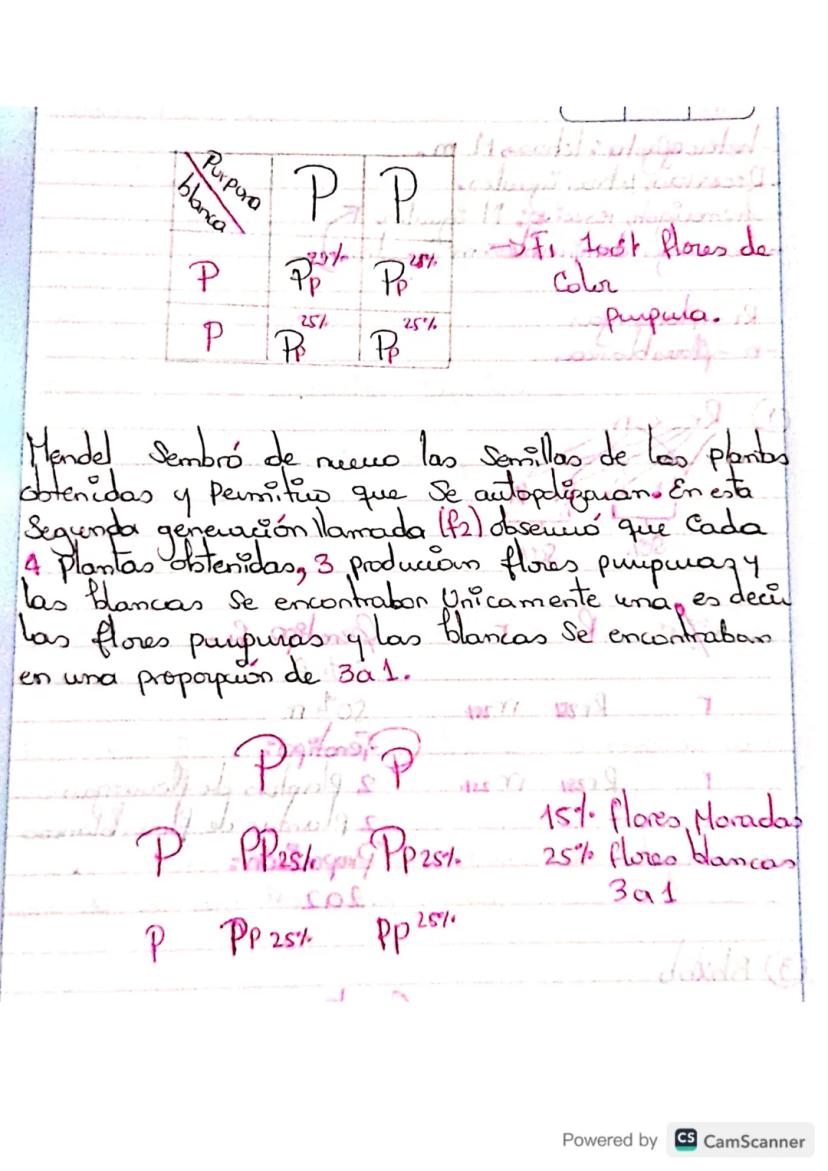 Purpura P P
blanca
P Pp 25% Pp 25%
P Pp 25% Pp 25%
→ F1 100% flores de
Color
purpura.
Mendel Sembró de nuevo las Semillas de las plantas
obtenidas y permitio que Se autopolizuan. En esta
Segunda generación llamada (f2) observó que Cada
4 plantas obtenidas, 3 producian flores purpuras y
las blancas Se encontrabon Unicamente una, es decir
las flores purpuras y las blancas Se encontraban
en una proporción de 3a1.
P p
P PP 25% Pp 25%
p Pp 25% pp 25%
15% flores Moradas
25% flores blancas
3a1
Powered by CS CamScanner